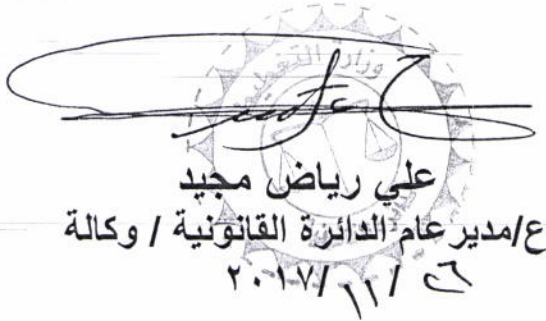 وزارة التخطيط
علي رياض مجيد
ع/مدير عام الدائرة القانونية / وكالة
٢٦ /١١/ ٢٠١٧